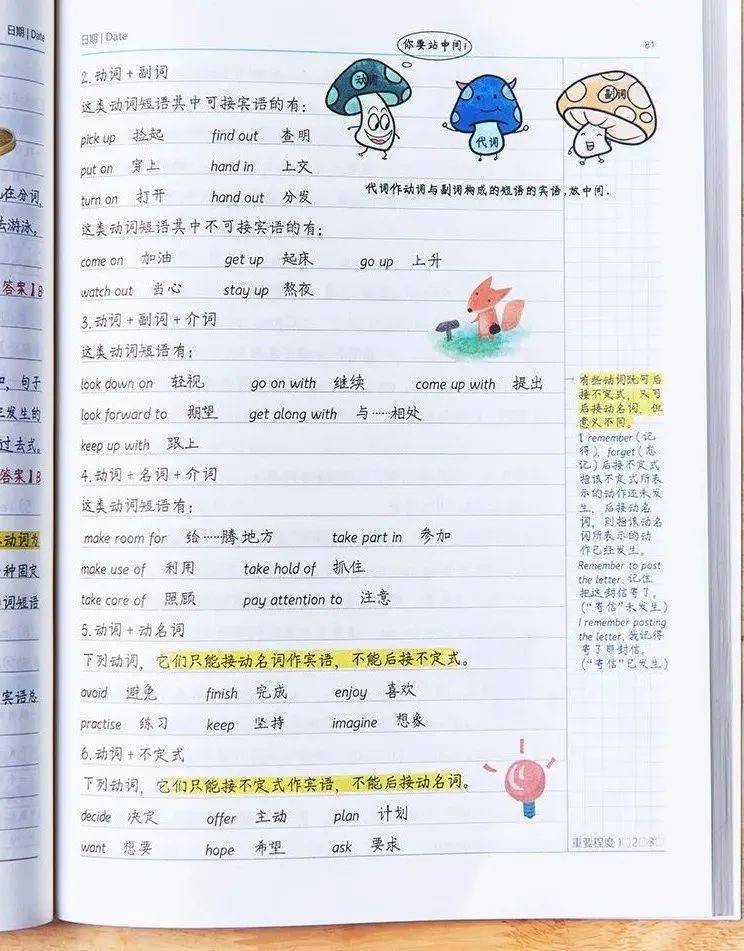 日期 | Date
在分词
去游泳。
答案】B
和, 句子
三发生的
过去式。
答案】B
动词为
种固定
词短语
宾语总
日期 | Date
81
你要站中间!
动词
代词
副词
2.动词 + 副词
这类动词短语其中可接宾语的有:
pick up 捡起 find out 查明
put on 穿上 hand in 上交
turn on 打开 hand out 分发
代词作动词与副词构成的短语的宾语,放中间.
这类动词短语其中不可接宾语的有:
come on 加油 get up 起床 go up 上升
watch out 当心 stay up 熬夜
3.动词 + 副词 + 介词
这类动词短语有:
look down on 轻视 go on with 继续 come up with 提出
look forward to 期望 get along with 与……相处
keep up with 跟上
4.动词 + 名词 + 介词
这类动词短语有:
make room for 给……腾地方 take part in 参加
make use of 利用 take hold of 抓住
take care of 照顾 pay attention to 注意
5.动词 + 动名词
下列动词, 它们只能接动名词作宾语, 不能后接不定式。
avoid 避免 finish 完成 enjoy 喜欢
practise 练习 keep 坚持 imagine 想象
6.动词 + 不定式
下列动词, 它们只能接不定式作宾语, 不能后接动名词。
decide 决定 offer 主动 plan 计划
want 想要 hope 希望 ask 要求
有些动词既可后
接不定式, 又可
后接动名词, 但
意义不同。
1 remember (记
得), forget (忘
记) 后接不定式
指该不定式所表
示的动作还未发
生, 后接动名
词, 则指该动名
词所表示的动
作已经发生。
Remember to post
the letter. 记住
把这封信寄了。
(“寄信”未发生)
I remember posting
the letter. 我记得
寄了那封信。
(“寄信”已发生)
重要程度 1□2□3□